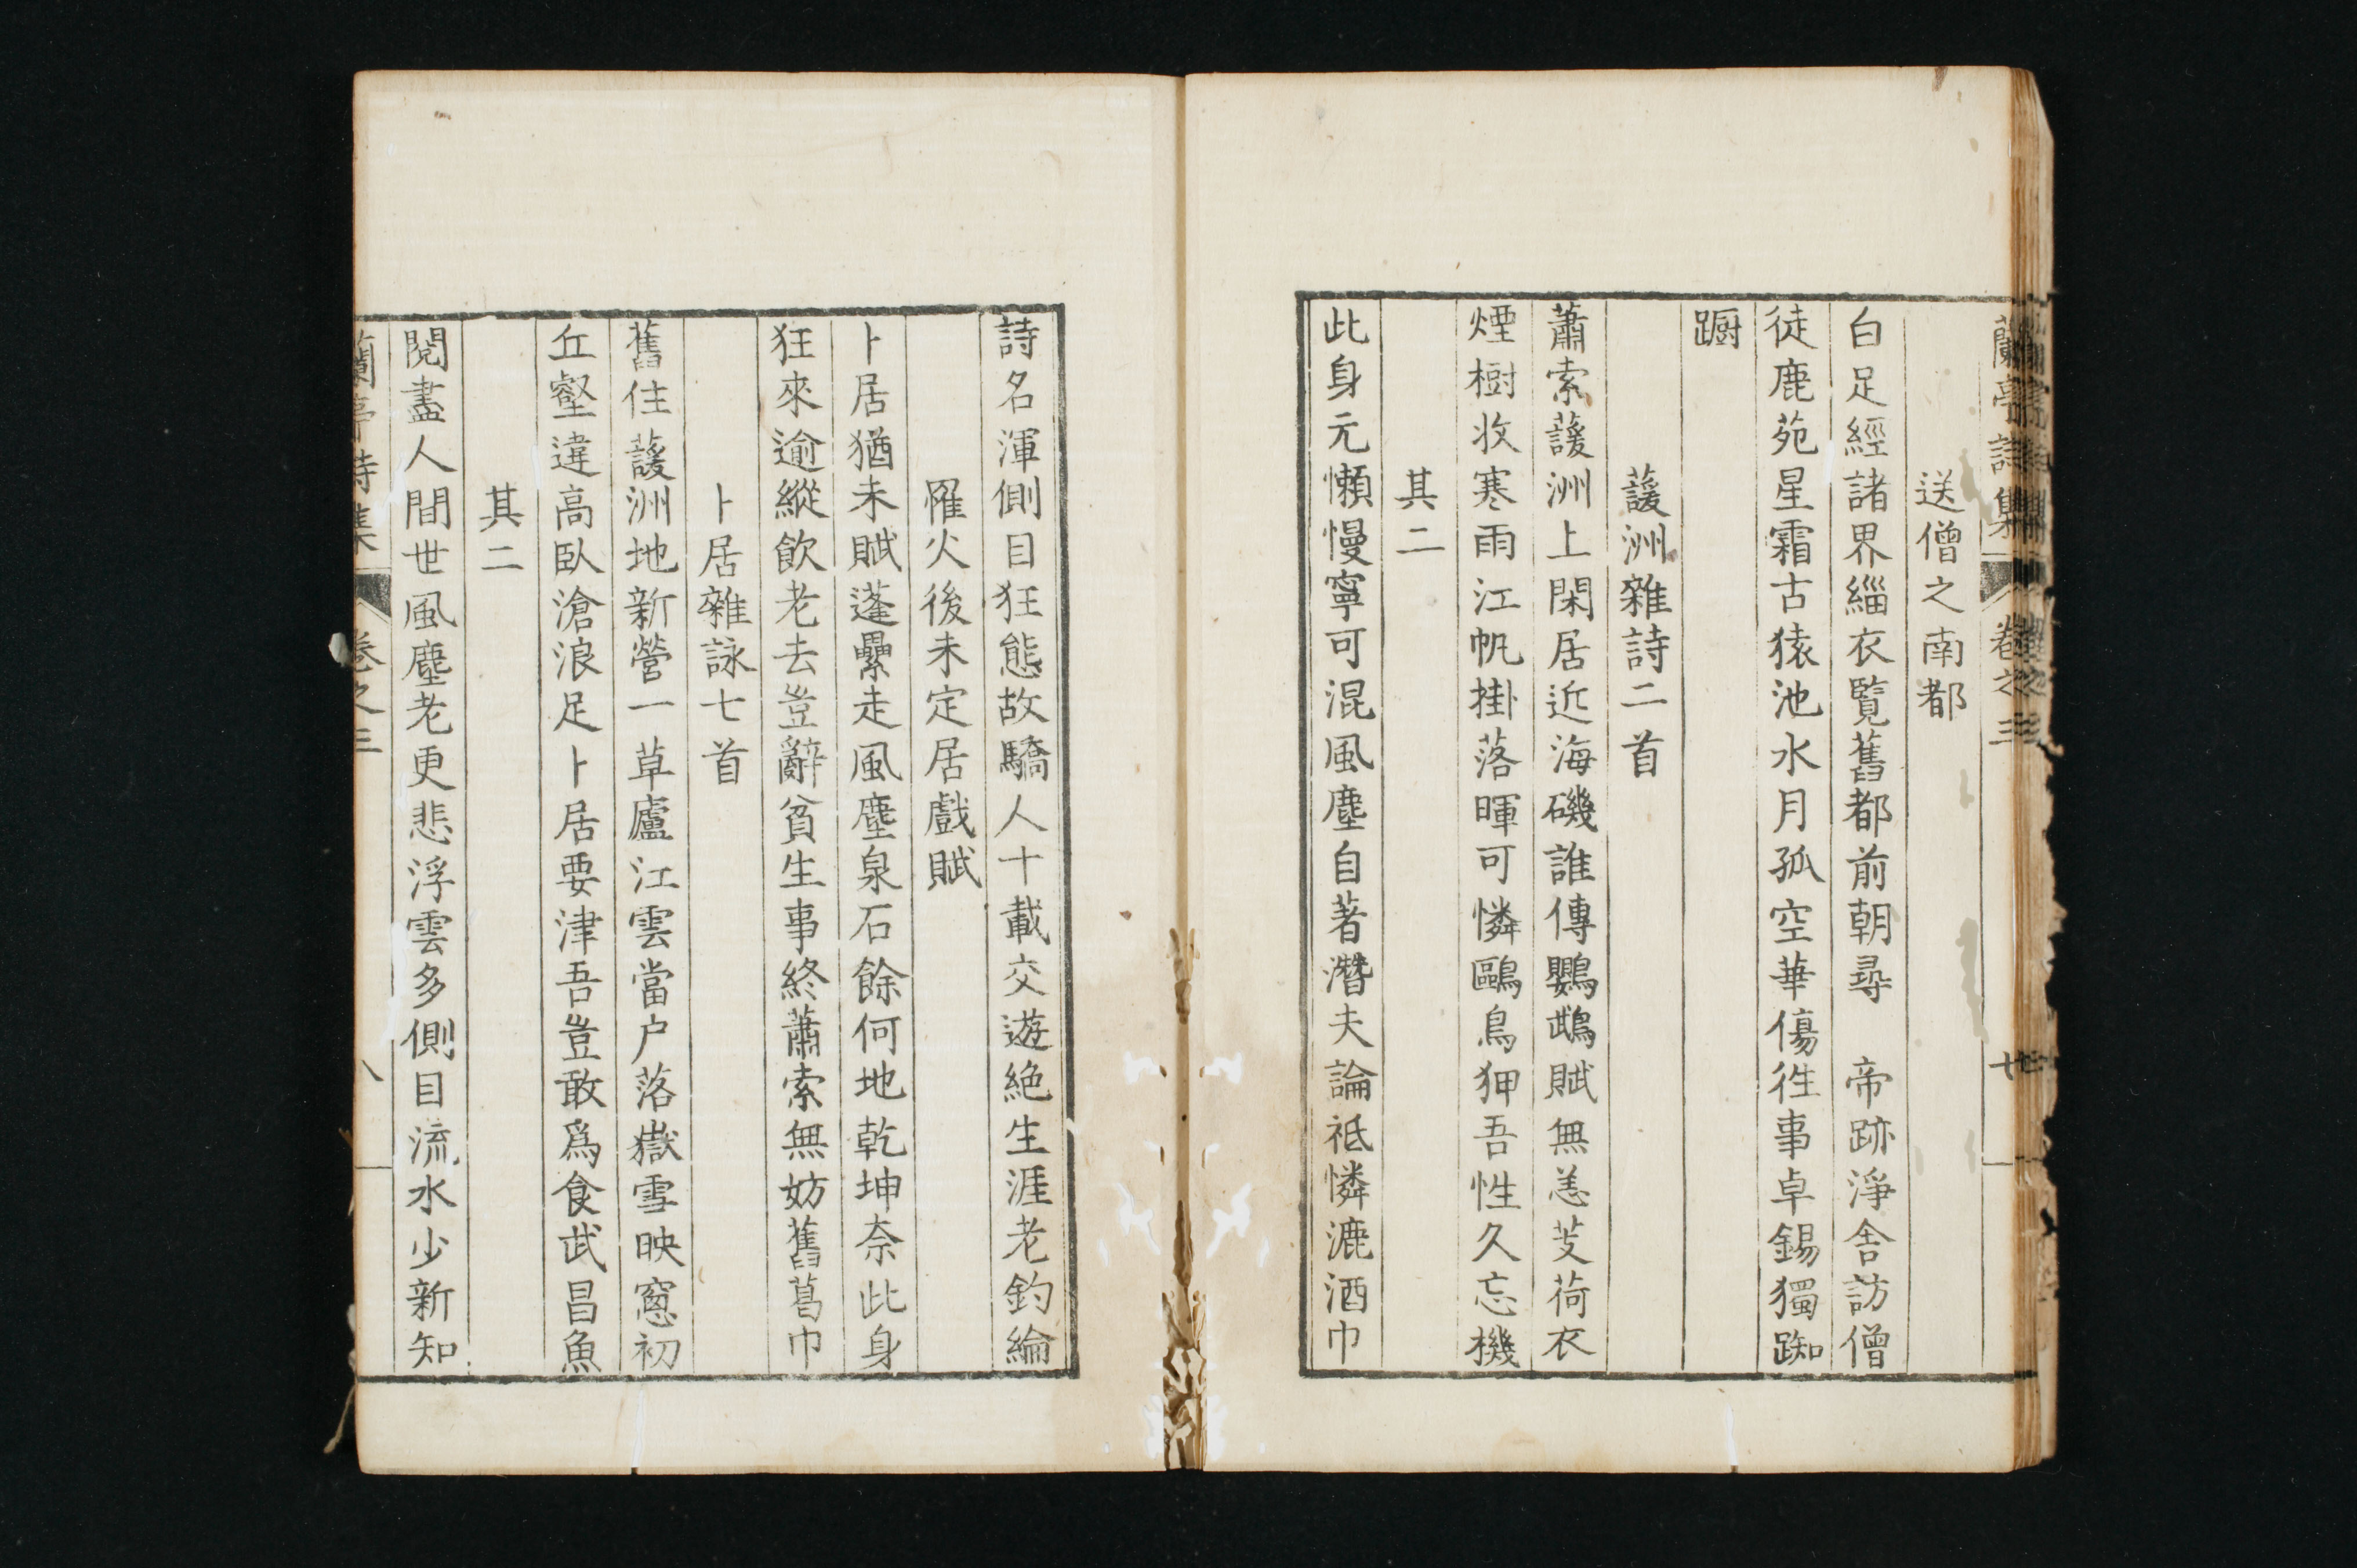 蘭亭詩集 卷之三
送僧之南都
白足經諸界緇衣覽舊都前朝尋　帝跡淨舎訪僧
徒鹿苑星霜古猿池水月孤空華傷徃事卓錫獨踟
蹰
蘐洲雜詩二首
蕭索蘐洲上閑居近海磯誰傳鸚鵡賦無恙芰荷衣
煙樹收寒雨江帆掛落暉可憐鷗鳥狎吾性久忘機
其二
此身元懶慢寧可混風塵自著潛夫論祗憐漉酒巾
詩名渾側目狂態故驕人十載交遊絶生涯老釣綸
罹火後未定居戲賦
卜居猶未賦蓬纍走風塵泉石餘何地乾坤奈此身
狂來逾縱飲老去豈辭貧生事終蕭索無妨舊葛巾
卜居雜詠七首
舊住蘐洲地新營一草廬江雲當户落嶽雪映窻初
丘壑違高臥滄浪足卜居要津吾豈敢爲食武昌魚
其二
閱盡人間世風塵老更悲浮雲多側目流水少新知
蘭亭詩集 卷之三 八